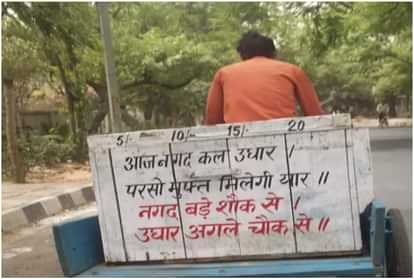 5/- 10/- 15/- 20
आज नगद कल उधार ।
परसो मुफ्त मिलेगी यार ॥
नगद बड़े शौक से ।
उधार अगले चौक से ॥